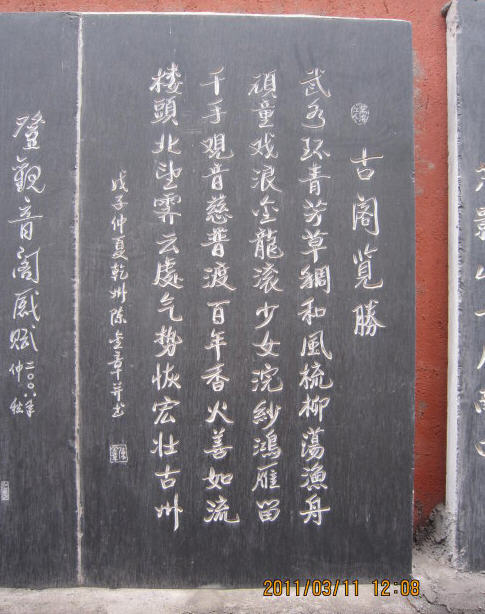 古阁览胜
武水环青芳草稠和風梳柳蕩漁舟
頑童戏浪金龍滚少女浣紗鴻雁留
千手觀音慈普渡百年香火善如流
楼頭北望霁云處气势恢宏壮古州
戊子仲夏乾州陈
章并书
登觀音阁感赋
二〇〇八年
仲秋
2011/03/11 12:08